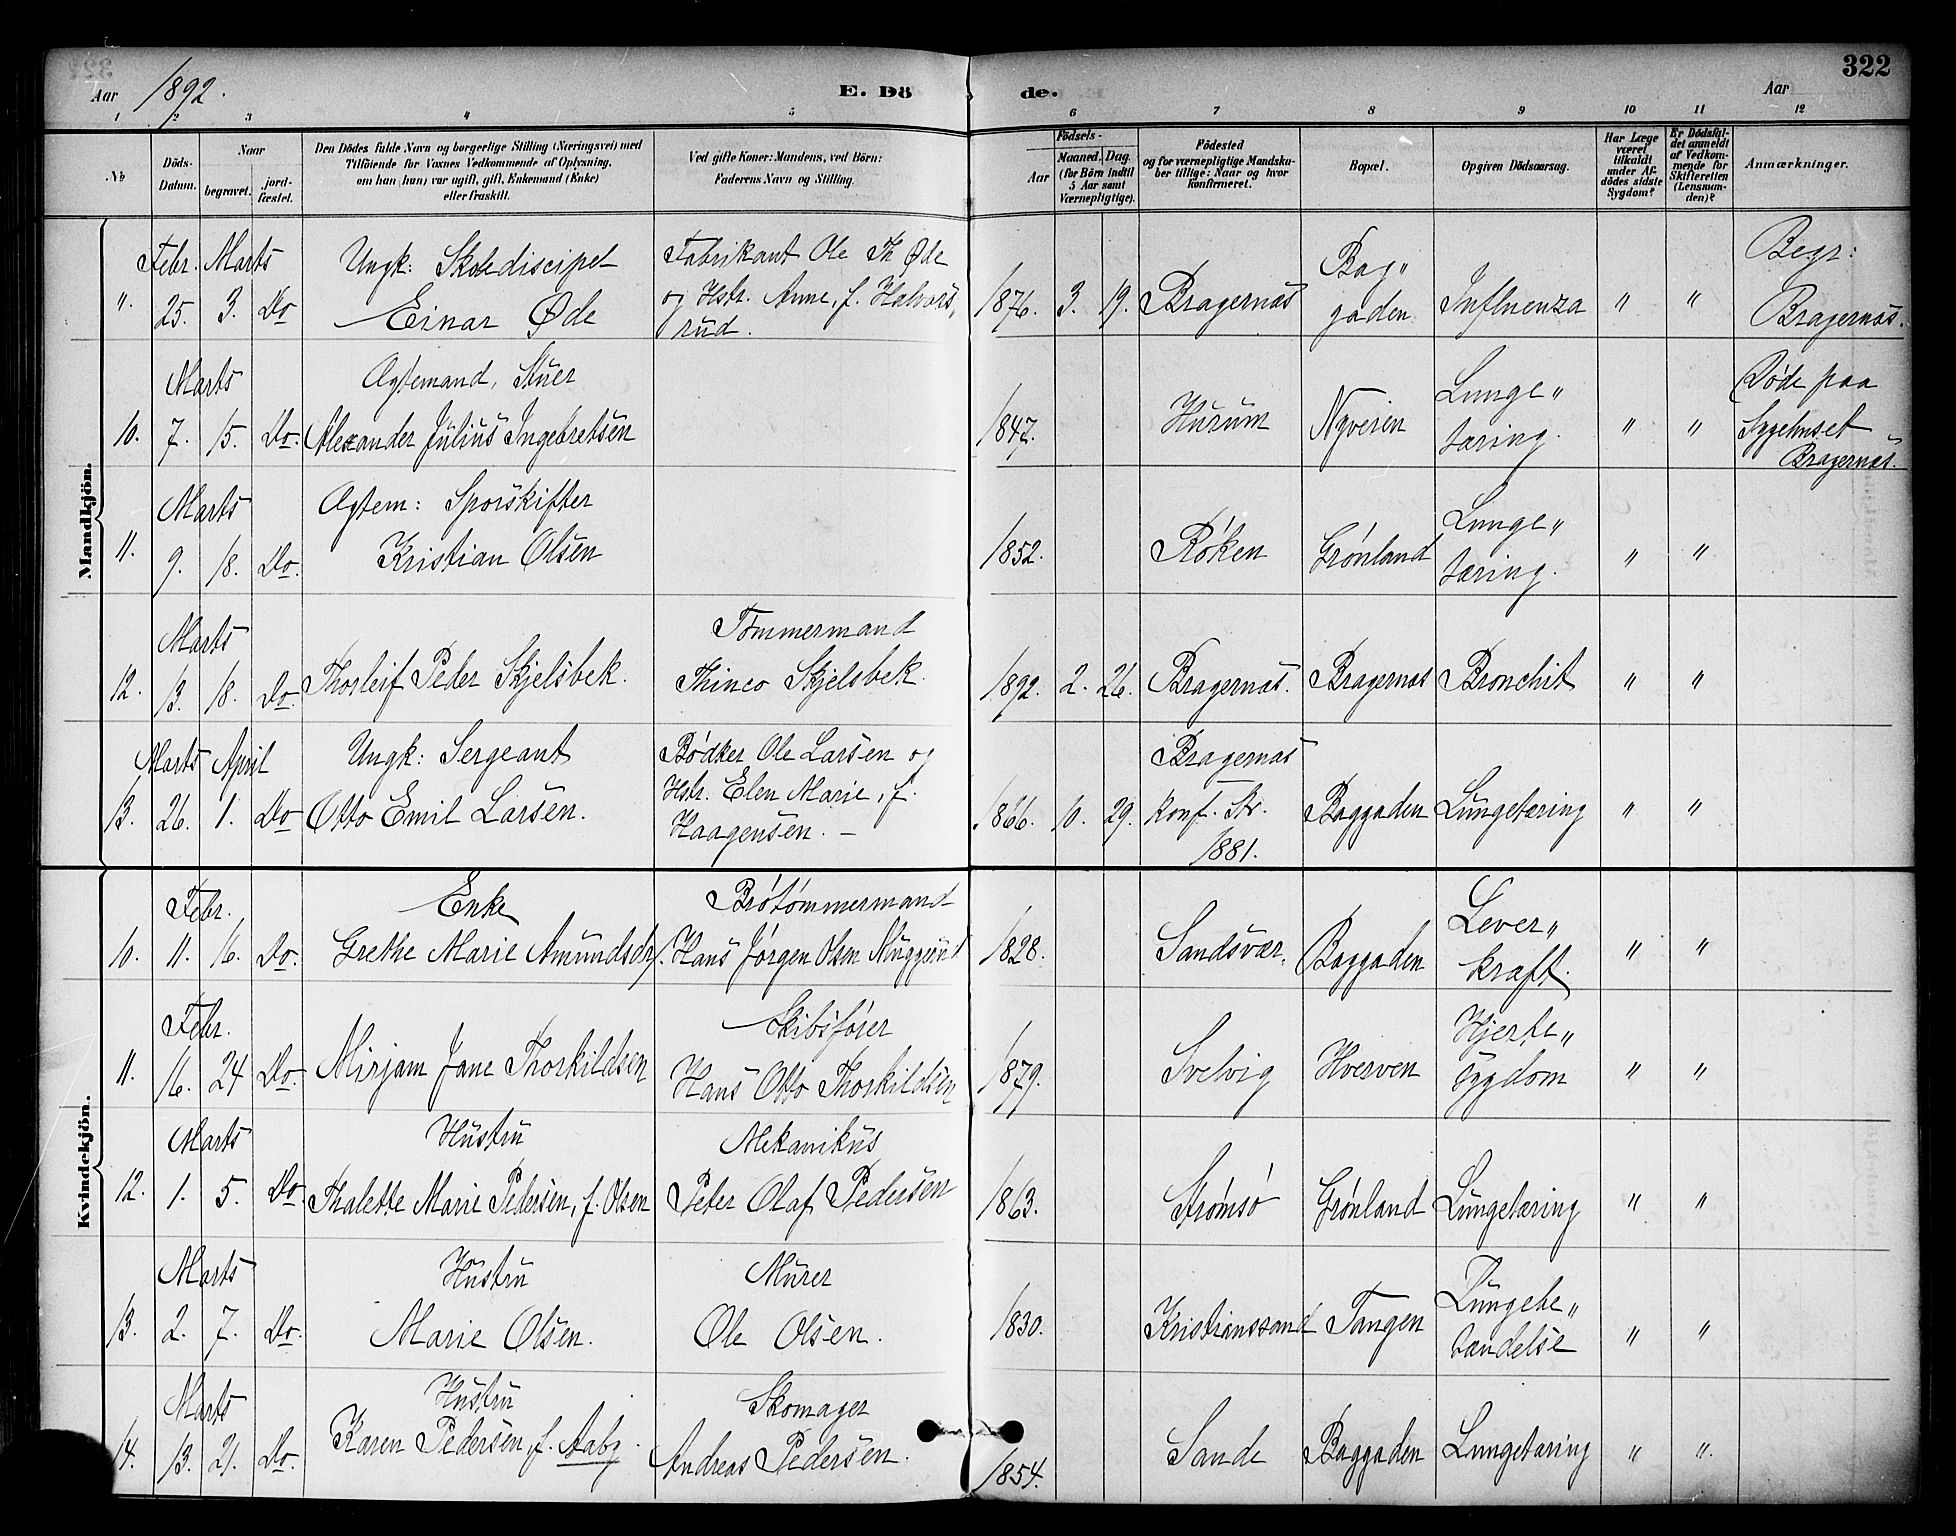 322
Aar 1892.
E. Dö de.
Aar
1 2 3 4 5 6 7 8 9 10 11 12
No
Döds-Datum.
Naar
begravet.
jord-fæstet.
Den Dödes fulde Navn og borgerlige Stilling (Næringsvei) med
Tilföiende for Voxnes Vedkommende af Oplysning,
om han (hun) var ugift, gift, Enkemand (Enke)
eller fraskilt.
Ved gifte Koner: Mandens, ved Börn:
Faderens Navn og Stilling.
Födsels-
Aar
Maaned. Dag.
(for Börn indtil
5 Aar samt
Værnepligtige).
Födested
og for værnepligtige Mandska-
ber tillige: Naar og hvor
konfirmeret.
Bopæl.
Opgiven Dödsaarsag.
Har Læge
været
tilkaldt
under Af-
dödes sidste
Sygdom?
Er Dödsfal-
det anmeldt
af Vedkom-
mende for
Skifteretten
(Lensman-
den)?
Anmærkninger.
Mandkjön.
Febr. Marts Ungk: Skolediscipel Fabrikant Ole Th Øde Bag„ Begr:
„. 25. 3. Do Einar Øde og Hstr. Anne, f. Halvors, 1876. 3. 19. Bragernæs gaden Influenza „ „ Bragernæs.
rud.
Marts Ægtemand, Stuer Lunge„ Døde paa
10. 7. 15. Do. Alexander Julius Ingebretsen 1847. Hurum Nyveien tæring. „ „ Sygehuset
Bragernæs.
Marts Ægtem: Sporskifter Lunge„
11. 9. 18. Do. Kristian Olsen 1852. Røken Grønland tæring. „ „
Marts Tømmermand
12. 13. 18. Do Thorleif Peder Skjelsbek. Thinco Skjelsbek. 1892. 2. 26. Bragernæs. Bragernæs Bronchit „ „
Marts April Ungk: Sergeant Bødker Ole Larsen og Bragernæs
13. 26. 1. Do Otto Emil Larsen. Hstr. Elen Marie, f. 1866. 10. 29. Konf. Str. Baggaden Lungetæring „ „
Haagensen. – 1881.
Kvindekjön.
Febr. Enke Brøtømmermand Lever„
10. 11. 16. Do. Grethe Marie Amundsdr. Hans Jørgen Olsen Muggerud 1828. Sandsvær. Baggaden kræft. „ „
Febr. Skibsfører Hjerte„
11. 16. 24 Do. Mirjam Jane Thorkildsen Hans Otto Thorkildsen 1879. Svelvig Hverven sygdom „ „
Marts Hustru Mekanikus
12. 1. 5. Do. Thalette Marie Pedersen, f. Olsen Peter Olaf Pedersen 1863. Strømsø Grønland Lungetæring „ „
Marts Hustru Murer Lungebe„
13. 2. 7. Do. Marie Olsen. Ole Olsen. 1830. Kristianssand Tangen tændelse „ „
Marts Hustru Skomager
14. 13. 21. Do. Karen Pedersen, f. Aaby. Andreas Pedersen. 1854. Sande Baggaden Lungetæring „ „